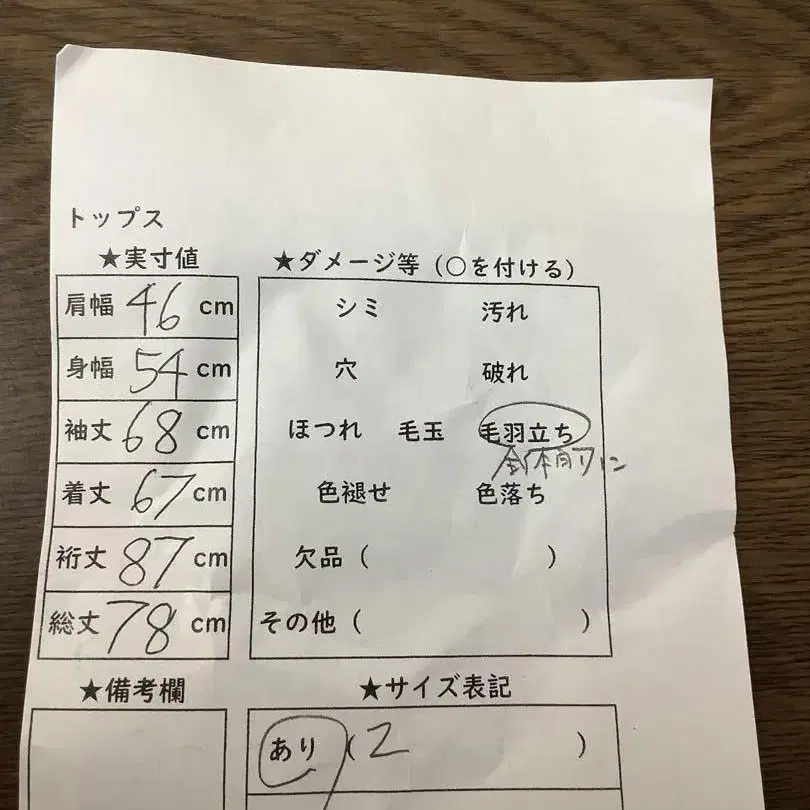 トップス
★実寸値
肩幅 46 cm
身幅 54 cm
袖丈 68 cm
着丈 67 cm
裄丈 87 cm
総丈 78 cm
★ダメージ等（○を付ける）
シミ 汚れ
穴 破れ
ほつれ 毛玉 毛羽立ち
全体的に
色褪せ 色落ち
欠品（ ）
その他（ ）
★備考欄
★サイズ表記
あり（2 ）